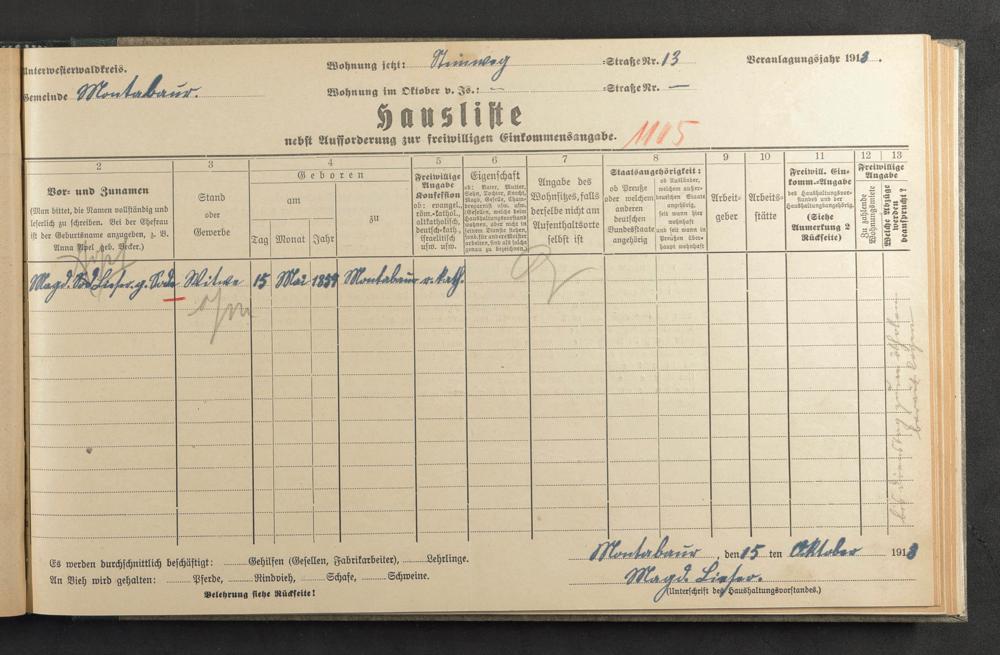 Unterwesterwaldkreis.
Wohnung jetzt: Steinweg =Straße Nr. 13
Veranlagungsjahr 1913.
Gemeinde Montabaur.
Wohnung im Oktober v. Js.: — =Straße Nr. —
Hausliste
nebst Aufforderung zur freiwilligen Einkommensangabe. 1105
2 3 4 5 6 7 8 9 10 11 12 13
Vor- und Zunamen
(Man bittet, die Namen vollständig und
leserlich zu schreiben. Bei der Ehefrau
ist der Geburtsname anzugeben, z. B.
Anna Apel geb. Becker.)
Stand
oder
Gewerbe
Geboren
am
Tag Monat Jahr
zu
Freiwillige
Angabe
Konfession
ob: evangel.,
röm.-kathol.,
altkatholisch,
deutsch-kath.,
israelitisch
usw. usw.
Eigenschaft
ob: Vater, Mutter,
Sohn, Tochter, Knecht,
Angabe des
Wohnsitzes, falls
derselbe nicht am
Aufenthaltsorte
selbst ist
Staatsangehörigkeit:
ob Preuße
oder welchem
anderen
deutschen
Bundesstaate
angehörig
ob Ausländer,
welchem außer-
deutschen Staate
angehörig,
seit wann hier
wohnhaft
und
seit wann in
Preußen über-
haupt wohnhaft
Arbeit-
geber
Arbeits-
stätte
Freiwill. Ein-
komm.-Angabe
des Haushaltungsvor-
standes und der
Haushaltungsangehörig.
(Siehe
Anmerkung 2
Rückseite)
Freiwillige
Angabe
Zu zahlende
Wohnungsmiete
Welche Abzüge
werden
beansprucht?
Magd. Lieser. g. Witwe 15 Mai 1859 Montabaur r. kath.
Es werden durchschnittlich beschäftigt: Gehilfen (Gesellen, Fabrikarbeiter), Lehrlinge.
An Vieh wird gehalten: Pferde, Rindvieh, Schafe, Schweine.
Belehrung siehe Rückseite!
Montabaur, den 15 ten Oktober 1913
Magd. Lieser.
(Unterschrift des Haushaltungsvorstandes.)